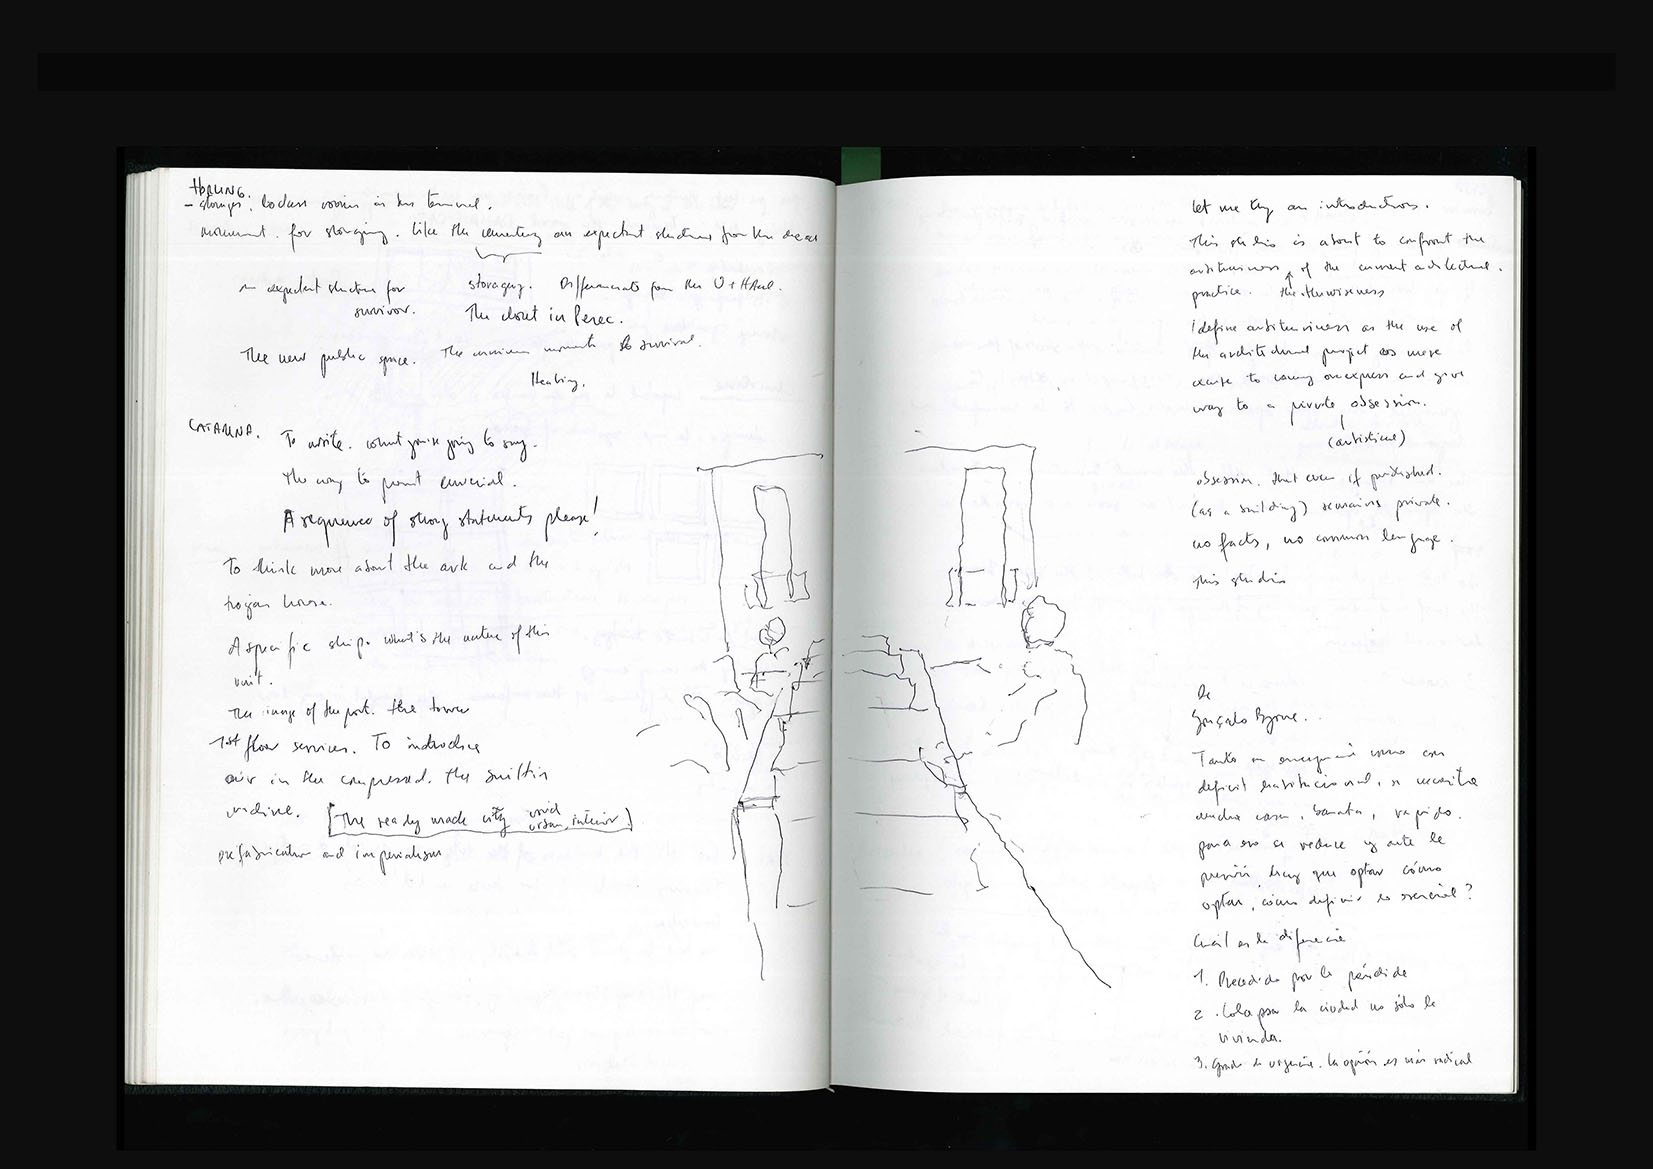 - storages: lockers rooms in the terminal.
monument. for storaging. like the cemetery an expectant structure for the dead
an expectant structure for
survivor.
storaging. Differenciate from the U + HAUL.
The closet in Perec.
The new public space. The moments survival.
Healing.
CATARINA. To write. what you're going to say.
The way to point crucial.
A sequence of strong statements please!
To think more about the ark and the
trojan horse.
A specific ship. what's the nature of this
unit.
The image of the port. the tower
1st floor services. To introduce
air in the compressed. the built in
[The ready made city void
urban interior.]
prefabrication and imperialism
let me try an introduction.
This studio is about to confront the
arbitrariness of the current architectural.
practice. the otherwiseness
I define arbitrariness as the use of
the architectural project as mere
excuse to express and give
way to a private obsession.
(artistical)
obsession. that even if published.
(as a building) remains private.
no facts, no common language.
this studio
De
Gonçalo Byrne.
Tanto en emergencia como con
deficit habitacional, se necesita
mucha casa, barata, rapido.
para eso se reduce y ante la
presión hay que optar cómo
optar, cómo definir lo esencial?
Cuál es la diferencia
1. Precedida por la pérdida
2. Colapsar la ciudad no sólo la
vivienda.
3. Grado de urgencia. la opción es más radical